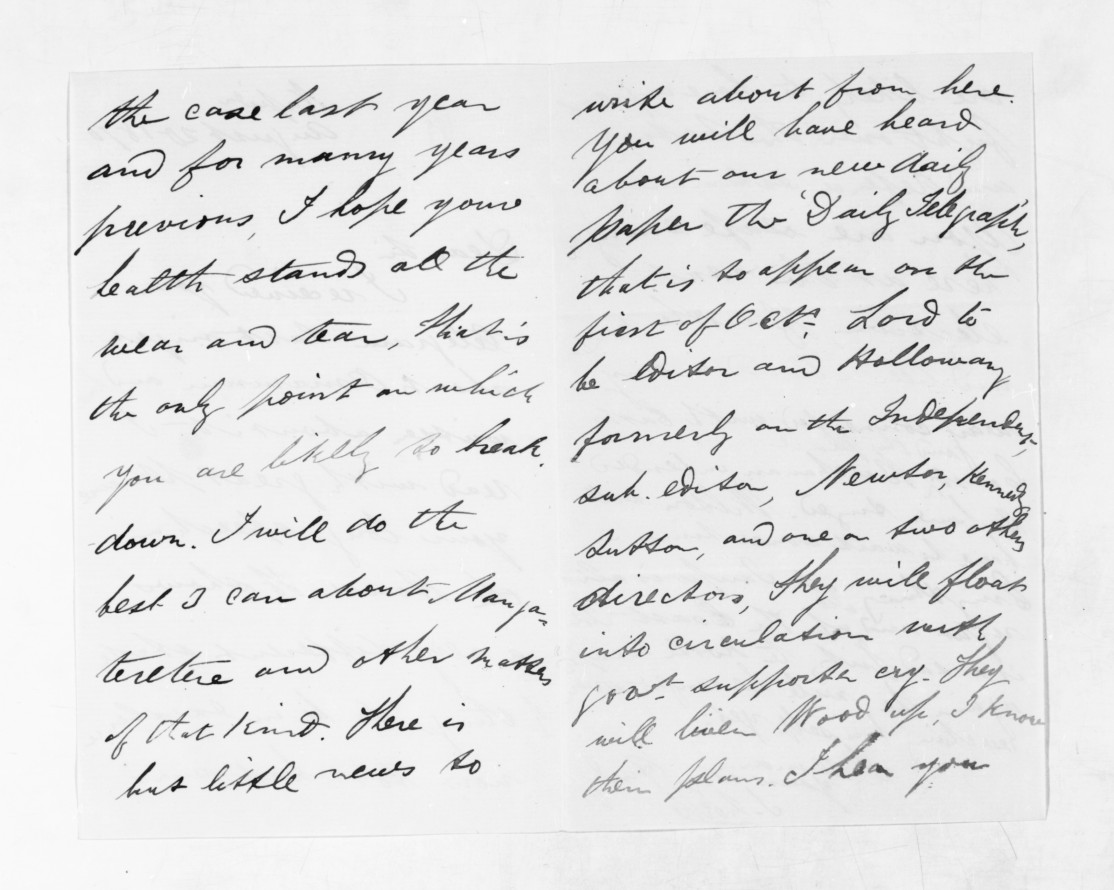 the case last year
and for manny years
previous, I hope your
health stands all the
wear and tear, that is
the only point on which
you are likelly to break
down. I will do the
best I can about Manga-
teretere and other matters
of that kind. There is
but little news to
write about from here.
You will have heard
about our new daily
paper the 'Daily Telegraph',
that is to appear on the
first of Octr. Lord to
be editor and Holloway
formerly on the Independent,
sub. editor, Newton, Kennedy
Sutton, and one or two others
directors, they will float
into circulation with
govt supporter cry. They
will liven Wood up, I know
their plans. I hear you